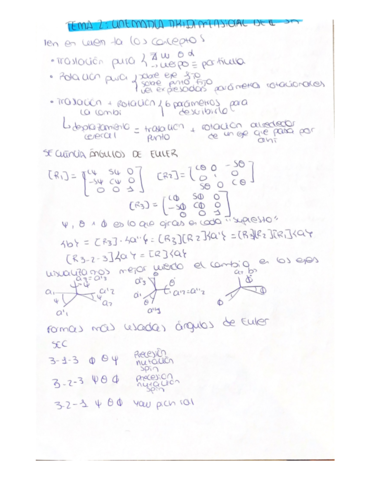 TEMA 2: CINEMÁTICA TRIDIMENSIONAL DE
ten en cuenta los conceptos
• Traslación pura { ∄ w o α
cuerpo = partícula
• Rotación pura { sobre eje fijo
sobre punto fijo
ves expresadas parámetros rotacionales
• Traslación + Rotación { 6 parámetros para
la combi describirlo
↳ desplazamiento general = traslación punto + rotación alrededor de un eje que pasa por ahí
SECUENCIA ÁNGULOS DE EULER
[R1] = [Cψ Sψ 0
-Sψ Cψ 0
0 0 1]
[R2] = [Cθ 0 -Sθ
0 1 0
Sθ 0 Cθ]
[R3] = [CΦ SΦ 0
-SΦ CΦ 0
0 0 1]
ψ, θ + Φ es lo que giras en cada "supuesto"
{b} = [R3]·{a''} = [R3][R2]{a'} = [R3][R2][R1]{a}
[R3-2-3]{a} = [R]{a}
visualizamos mejor viendo el cambio en los ejes
formas más usadas ángulos de Euler
SEC
3-1-3 Φ θ ψ Precesión
nutación
spin
3-2-3 ψ θ Φ precesión
nutación
spin
3-2-1 ψ θ Φ yaw pich rol